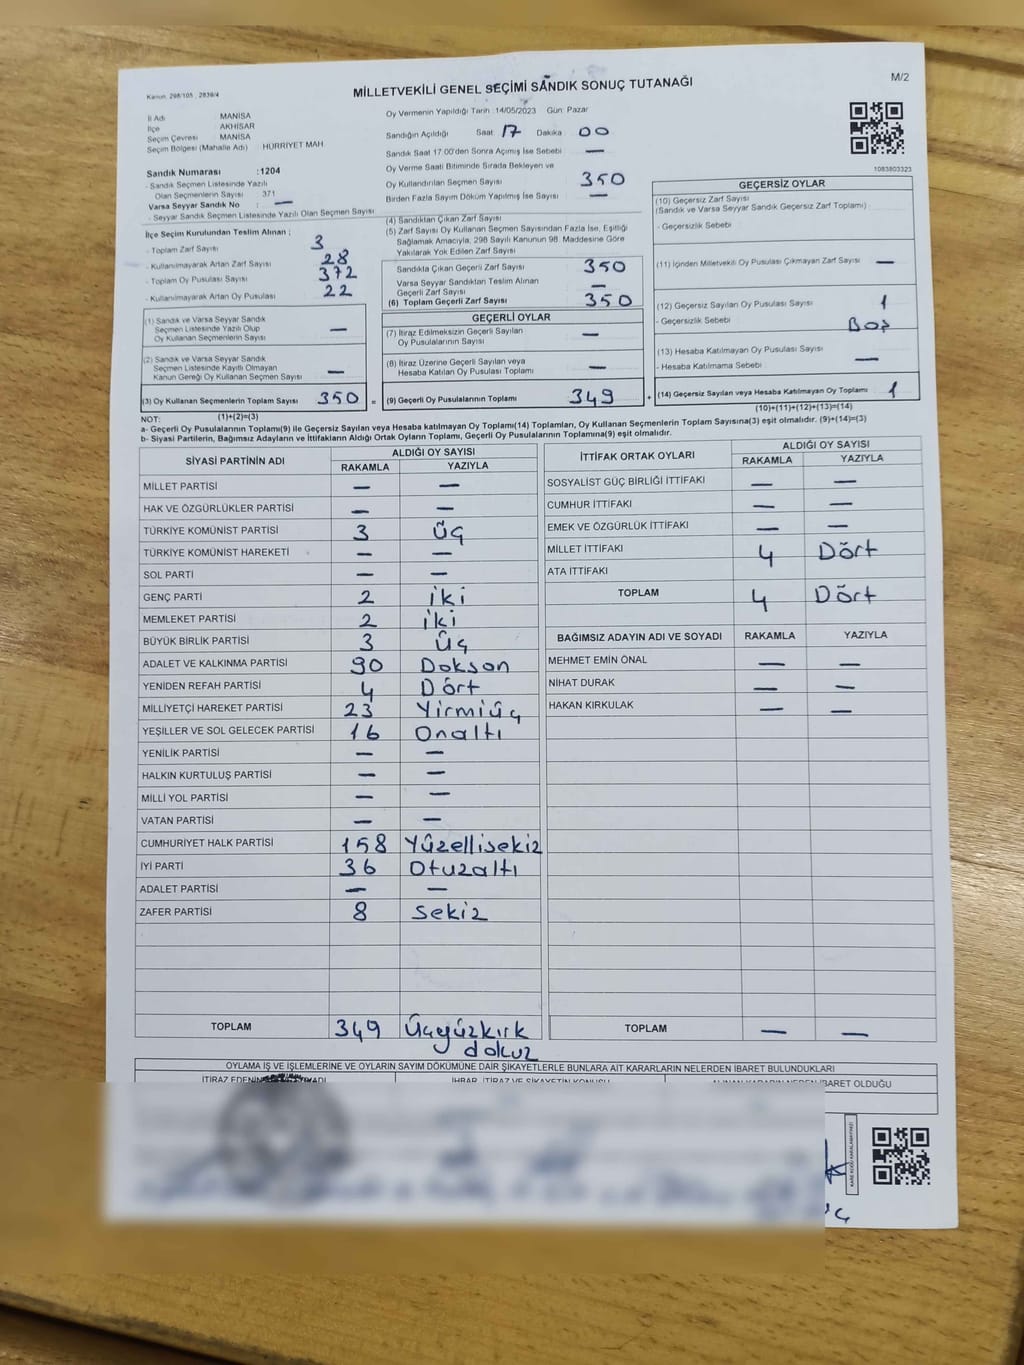 Kanun: 298/105 , 2839/4
MİLLETVEKİLİ GENEL SEÇİMİ SANDIK SONUÇ TUTANAĞI
M/2
İl Adı : MANİSA
İlçe : AKHİSAR
Seçim Çevresi : MANİSA
Seçim Bölgesi (Mahalle Adı) : HÜRRİYET MAH
Sandık Numarası :1204
- Sandık Seçmen Listesinde Yazılı
Olan Seçmenlerin Sayısı : 371
Varsa Seyyar Sandık No : —
- Seyyar Sandık Seçmen Listesinde Yazılı Olan Seçmen Sayısı
İlçe Seçim Kurulundan Teslim Alınan ;
- Toplam Zarf Sayısı 3
- Kullanılmayarak Artan Zarf Sayısı 28
- Toplam Oy Pusulası Sayısı 372
- Kullanılmayarak Artan Oy Pusulası 22
(1) Sandık ve Varsa Seyyar Sandık
Seçmen Listesinde Yazılı Olup
Oy Kullanan Seçmenlerin Sayısı —
(2) Sandık ve Varsa Seyyar Sandık
Seçmen Listesinde Kayıtlı Olmayan
Kanun Gereği Oy Kullanan Seçmen Sayısı —
(3) Oy Kullanan Seçmenlerin Toplam Sayısı 350 =
(1)+(2)=(3)
Oy Vermenin Yapıldığı Tarih :14/05/2023 Gün: Pazar
Sandığın Açıldığı Saat 17 Dakika 00
Sandık Saat 17.00'den Sonra Açılmış İse Sebebi —
Oy Verme Saati Bitiminde Sırada Bekleyen ve
Oy Kullandırılan Seçmen Sayısı 350
Birden Fazla Sayım Döküm Yapılmış İse Sayısı —
(4) Sandıktan Çıkan Zarf Sayısı
(5) Zarf Sayısı Oy Kullanan Seçmen Sayısından Fazla İse, Eşitliği
Sağlamak Amacıyla, 298 Sayılı Kanunun 98. Maddesine Göre
Yakılarak Yok Edilen Zarf Sayısı
Sandıkta Çıkan Geçerli Zarf Sayısı 350
Varsa Seyyar Sandıktan Teslim Alınan
Geçerli Zarf Sayısı —
(6) Toplam Geçerli Zarf Sayısı 350
GEÇERLİ OYLAR
(7) İtiraz Edilmeksizin Geçerli Sayılan
Oy Pusulalarının Sayısı —
(8) İtiraz Üzerine Geçerli Sayılan veya
Hesaba Katılan Oy Pusulası Toplamı —
(9) Geçerli Oy Pusulalarının Toplamı 349 +
1083803323
GEÇERSİZ OYLAR
(10) Geçersiz Zarf Sayısı
(Sandık ve Varsa Seyyar Sandık Geçersiz Zarf Toplamı) :
- Geçersizlik Sebebi
(11) İçinden Milletvekili Oy Pusulası Çıkmayan Zarf Sayısı —
(12) Geçersiz Sayılan Oy Pusulası Sayısı 1
- Geçersizlik Sebebi : Boş
(13) Hesaba Katılmayan Oy Pusulası Sayısı
- Hesaba Katılmama Sebebi : —
(14) Geçersiz Sayılan veya Hesaba Katılmayan Oy Toplamı 1
(10)+(11)+(12)+(13)=(14)
NOT:
a- Geçerli Oy Pusulalarının Toplamı(9) ile Geçersiz Sayılan veya Hesaba katılmayan Oy Toplamı(14) Toplamları, Oy Kullanan Seçmenlerin Toplam Sayısına(3) eşit olmalıdır. (9)+(14)=(3)
b- Siyasi Partilerin, Bağımsız Adayların ve İttifakların Aldığı Ortak Oyların Toplamı, Geçerli Oy Pusulalarının Toplamına(9) eşit olmalıdır.
SİYASİ PARTİNİN ADI ALDIĞI OY SAYISI
RAKAMLA YAZIYLA
MİLLET PARTİSİ — —
HAK VE ÖZGÜRLÜKLER PARTİSİ — —
TÜRKİYE KOMÜNİST PARTİSİ 3 Üç
TÜRKİYE KOMÜNİST HAREKETİ — —
SOL PARTİ — —
GENÇ PARTİ 2 iki
MEMLEKET PARTİSİ 2 iki
BÜYÜK BİRLİK PARTİSİ 3 Üç
ADALET VE KALKINMA PARTİSİ 90 Doksan
YENİDEN REFAH PARTİSİ 4 Dört
MİLLİYETÇİ HAREKET PARTİSİ 23 Yirmiüç
YEŞİLLER VE SOL GELECEK PARTİSİ 16 Onaltı
YENİLİK PARTİSİ — —
HALKIN KURTULUŞ PARTİSİ — —
MİLLİ YOL PARTİSİ — —
VATAN PARTİSİ — —
CUMHURİYET HALK PARTİSİ 158 Yüzellisekiz
İYİ PARTİ 36 Otuzaltı
ADALET PARTİSİ — —
ZAFER PARTİSİ 8 Sekiz
TOPLAM 349 Üçyüzkırk
dokuz
İTTİFAK ORTAK OYLARI ALDIĞI OY SAYISI
RAKAMLA YAZIYLA
SOSYALİST GÜÇ BİRLİĞİ İTTİFAKI — —
CUMHUR İTTİFAKI — —
EMEK VE ÖZGÜRLÜK İTTİFAKI — —
MİLLET İTTİFAKI 4 Dört
ATA İTTİFAKI
TOPLAM 4 Dört
BAĞIMSIZ ADAYIN ADI VE SOYADI RAKAMLA YAZIYLA
MEHMET EMİN ÖNAL — —
NİHAT DURAK — —
HAKAN KIRKULAK — —
TOPLAM — —
OYLAMA İŞ VE İŞLEMLERİNE VE OYLARIN SAYIM DÖKÜMÜNE DAİR ŞİKAYETLERLE BUNLARA AİT KARARLARIN NELERDEN İBARET BULUNDUKLARI
İTİRAZ EDENİN
İHBAR, İTİRAZ VE ŞİKAYETİN KONUSU
ALINAN KARARIN NEDEN İBARET OLDUĞU